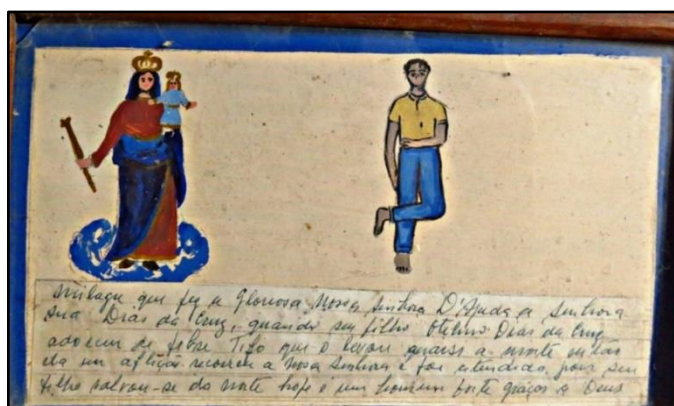 Milagre que fez a Gloriosa Nossa Senhora D'Ajuda a Senhora
Dias da Cruz, quando seu filho Dias da Cruz
adoeceu de febre Tifo que o levou quase a morte então
ela em aflição recorreu a Nossa Senhora e foi atendida, pois seu
filho salvou-se da morte hoje é um homem forte graças a Deus